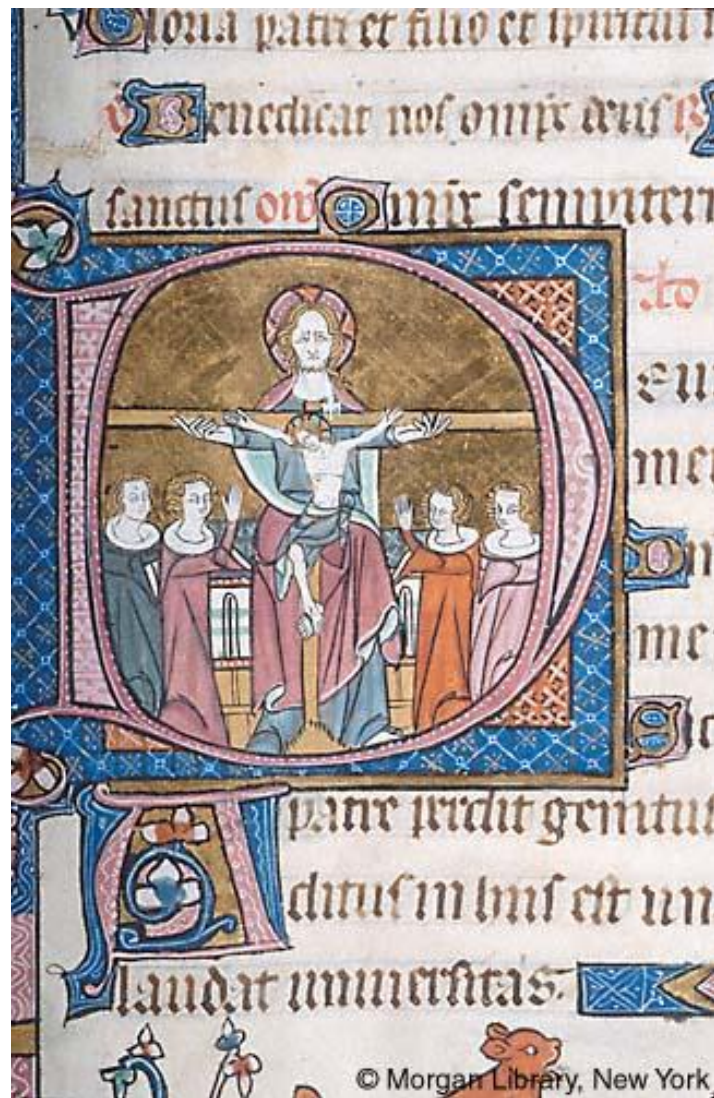 Gloria patri et filio et spiritui
Benedicat nos omps deus
sanctus Omps sempitern
eu
me
me
patre perdit genitu
ditus in huis est un
laudat uniuersitas.
© Morgan Library, New York